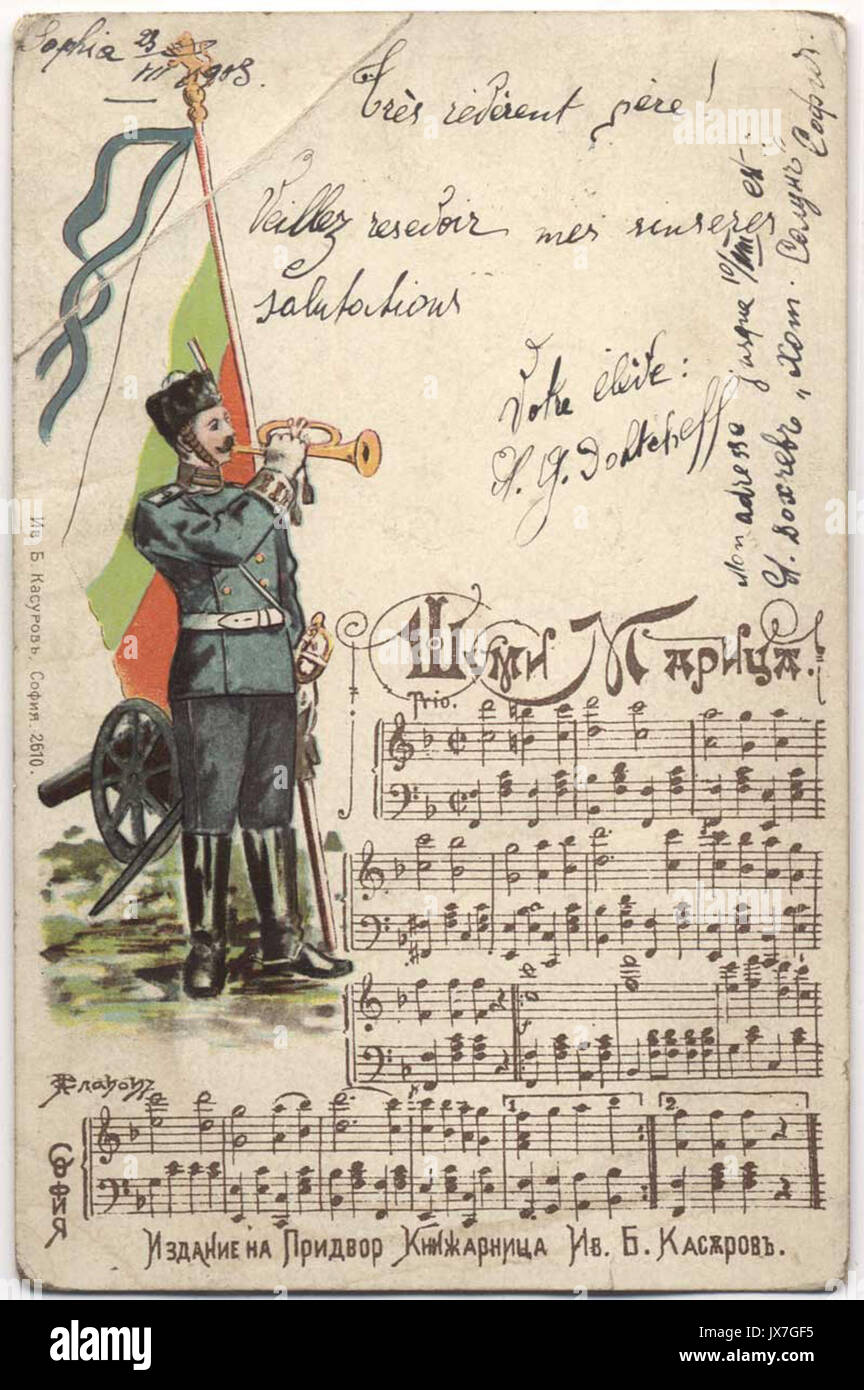 Sophia 23
III 1903.
Très révérent père!
Veillez resevoir mes sinseres
salutations
Votre élève:
Mon adresse jusque 10/VIII ex
Хот. Солунъ"
София.
Шуми Марица.
Trio.
Ив. Б. Касуровъ, София. 2610.
1
2
София
Издание на Придвор Книжарница Ив. Б. Касѫровъ.
alamy
alamy
Image ID: JX7GF5
www.alamy.com